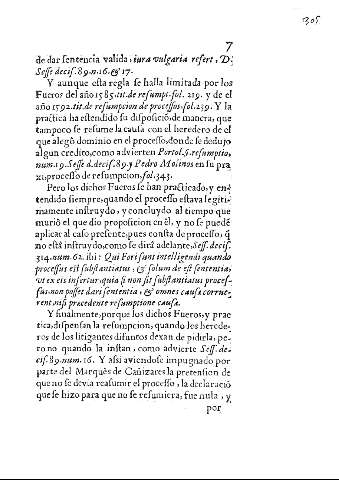 1305
7
de dar sentencia valida, iura vulgaria refert, D.
Sesse decis. 89. n. 16. & 17.
Y aunque esta regla se halla limitada por los
Fueros del año 1585. tit. de resumpt. fol. 219. y de el
año 1592. tit. de resumpcion de processos. fol. 239. Y la
practica ha estendido su disposiciõ, de manera, que
tampoco se resume la causa con el heredero de el
que alegò dominio en el processo, donde se dedujo
algun credito, como advierten Portol. §. resumptio,
num. 19. Sesse d. decis. 89. y Pedro Molinos en su pra
xi, processo de resumpcion, fol. 343.
Pero los dichos Fueros se han practicado, y en-
tendido siempre, quando el processo estava legiti-
mamente instruydo, y concluydo al tiempo que
muriò el que diò proposicion en èl, y no se puede
aplicar al caso presente, pues consta de processo, q̃
no està instruydo, como se dirà adelante, Sess. decis.
314. num. 62. ibi: Qui Fori sunt intelligendi quando
processus est substantiatus, & solum de est sententia,
vt ex eis infertur, quia si non sit substantiatus proces-
sus, non posset dari sententia, & omnes causa corrue-
rent nisi præcedente resumptione causæ.
Y finalmente, porque los dichos Fueros, y prac
tica, dispensan la resumpcion, quando los herede-
ros de los litigantes difuntos dexan de pidirla, pe-
ro no quando la instan, como advierte Sess. de-
cis. 89. num. 16. Y assi aviendose impugnado por
parte del Marquès de Cañizares la pretension de
que no se devia reasumir el processo, la declaraciõ
que se hizo para que no se resumiera, fue nula, y
por